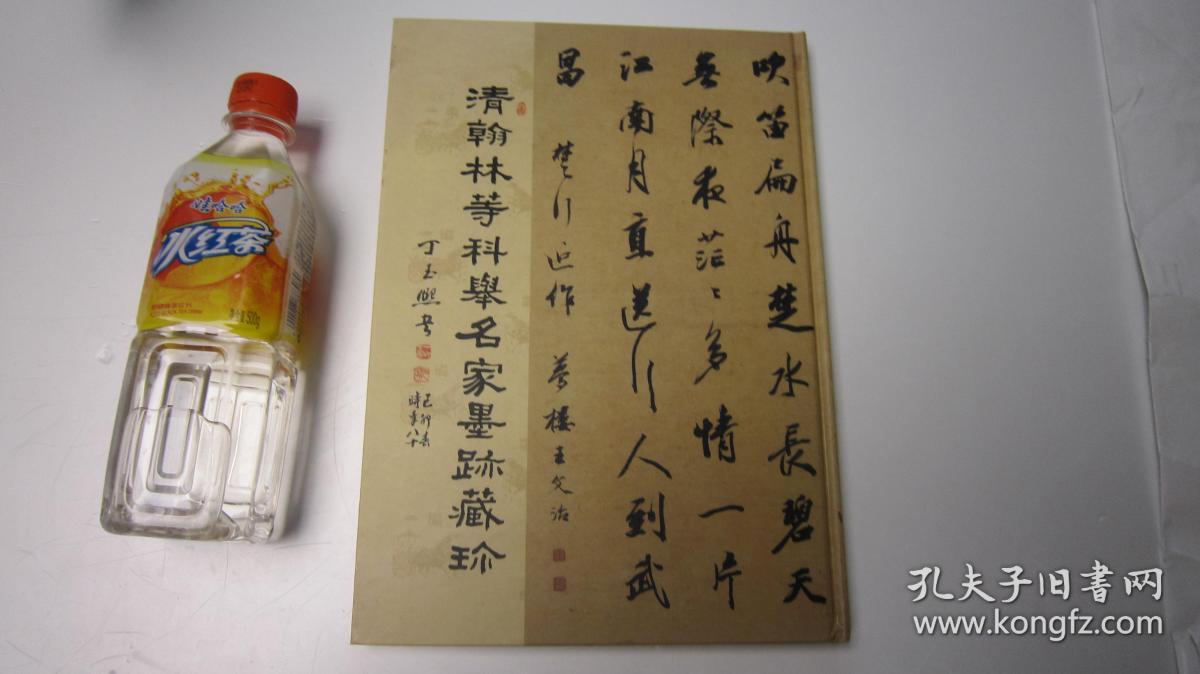 吹笛扁舟楚水長碧天
無際夜茫〻多情一片
江南月直送行人到武
昌 楚行近作 夢樓王文治
清翰林等科舉名家墨跡藏珍
丁玉熙书
己卯春
時年八十
娃哈哈
冰红茶
净含量500g
孔夫子旧书网
www.kongfz.com